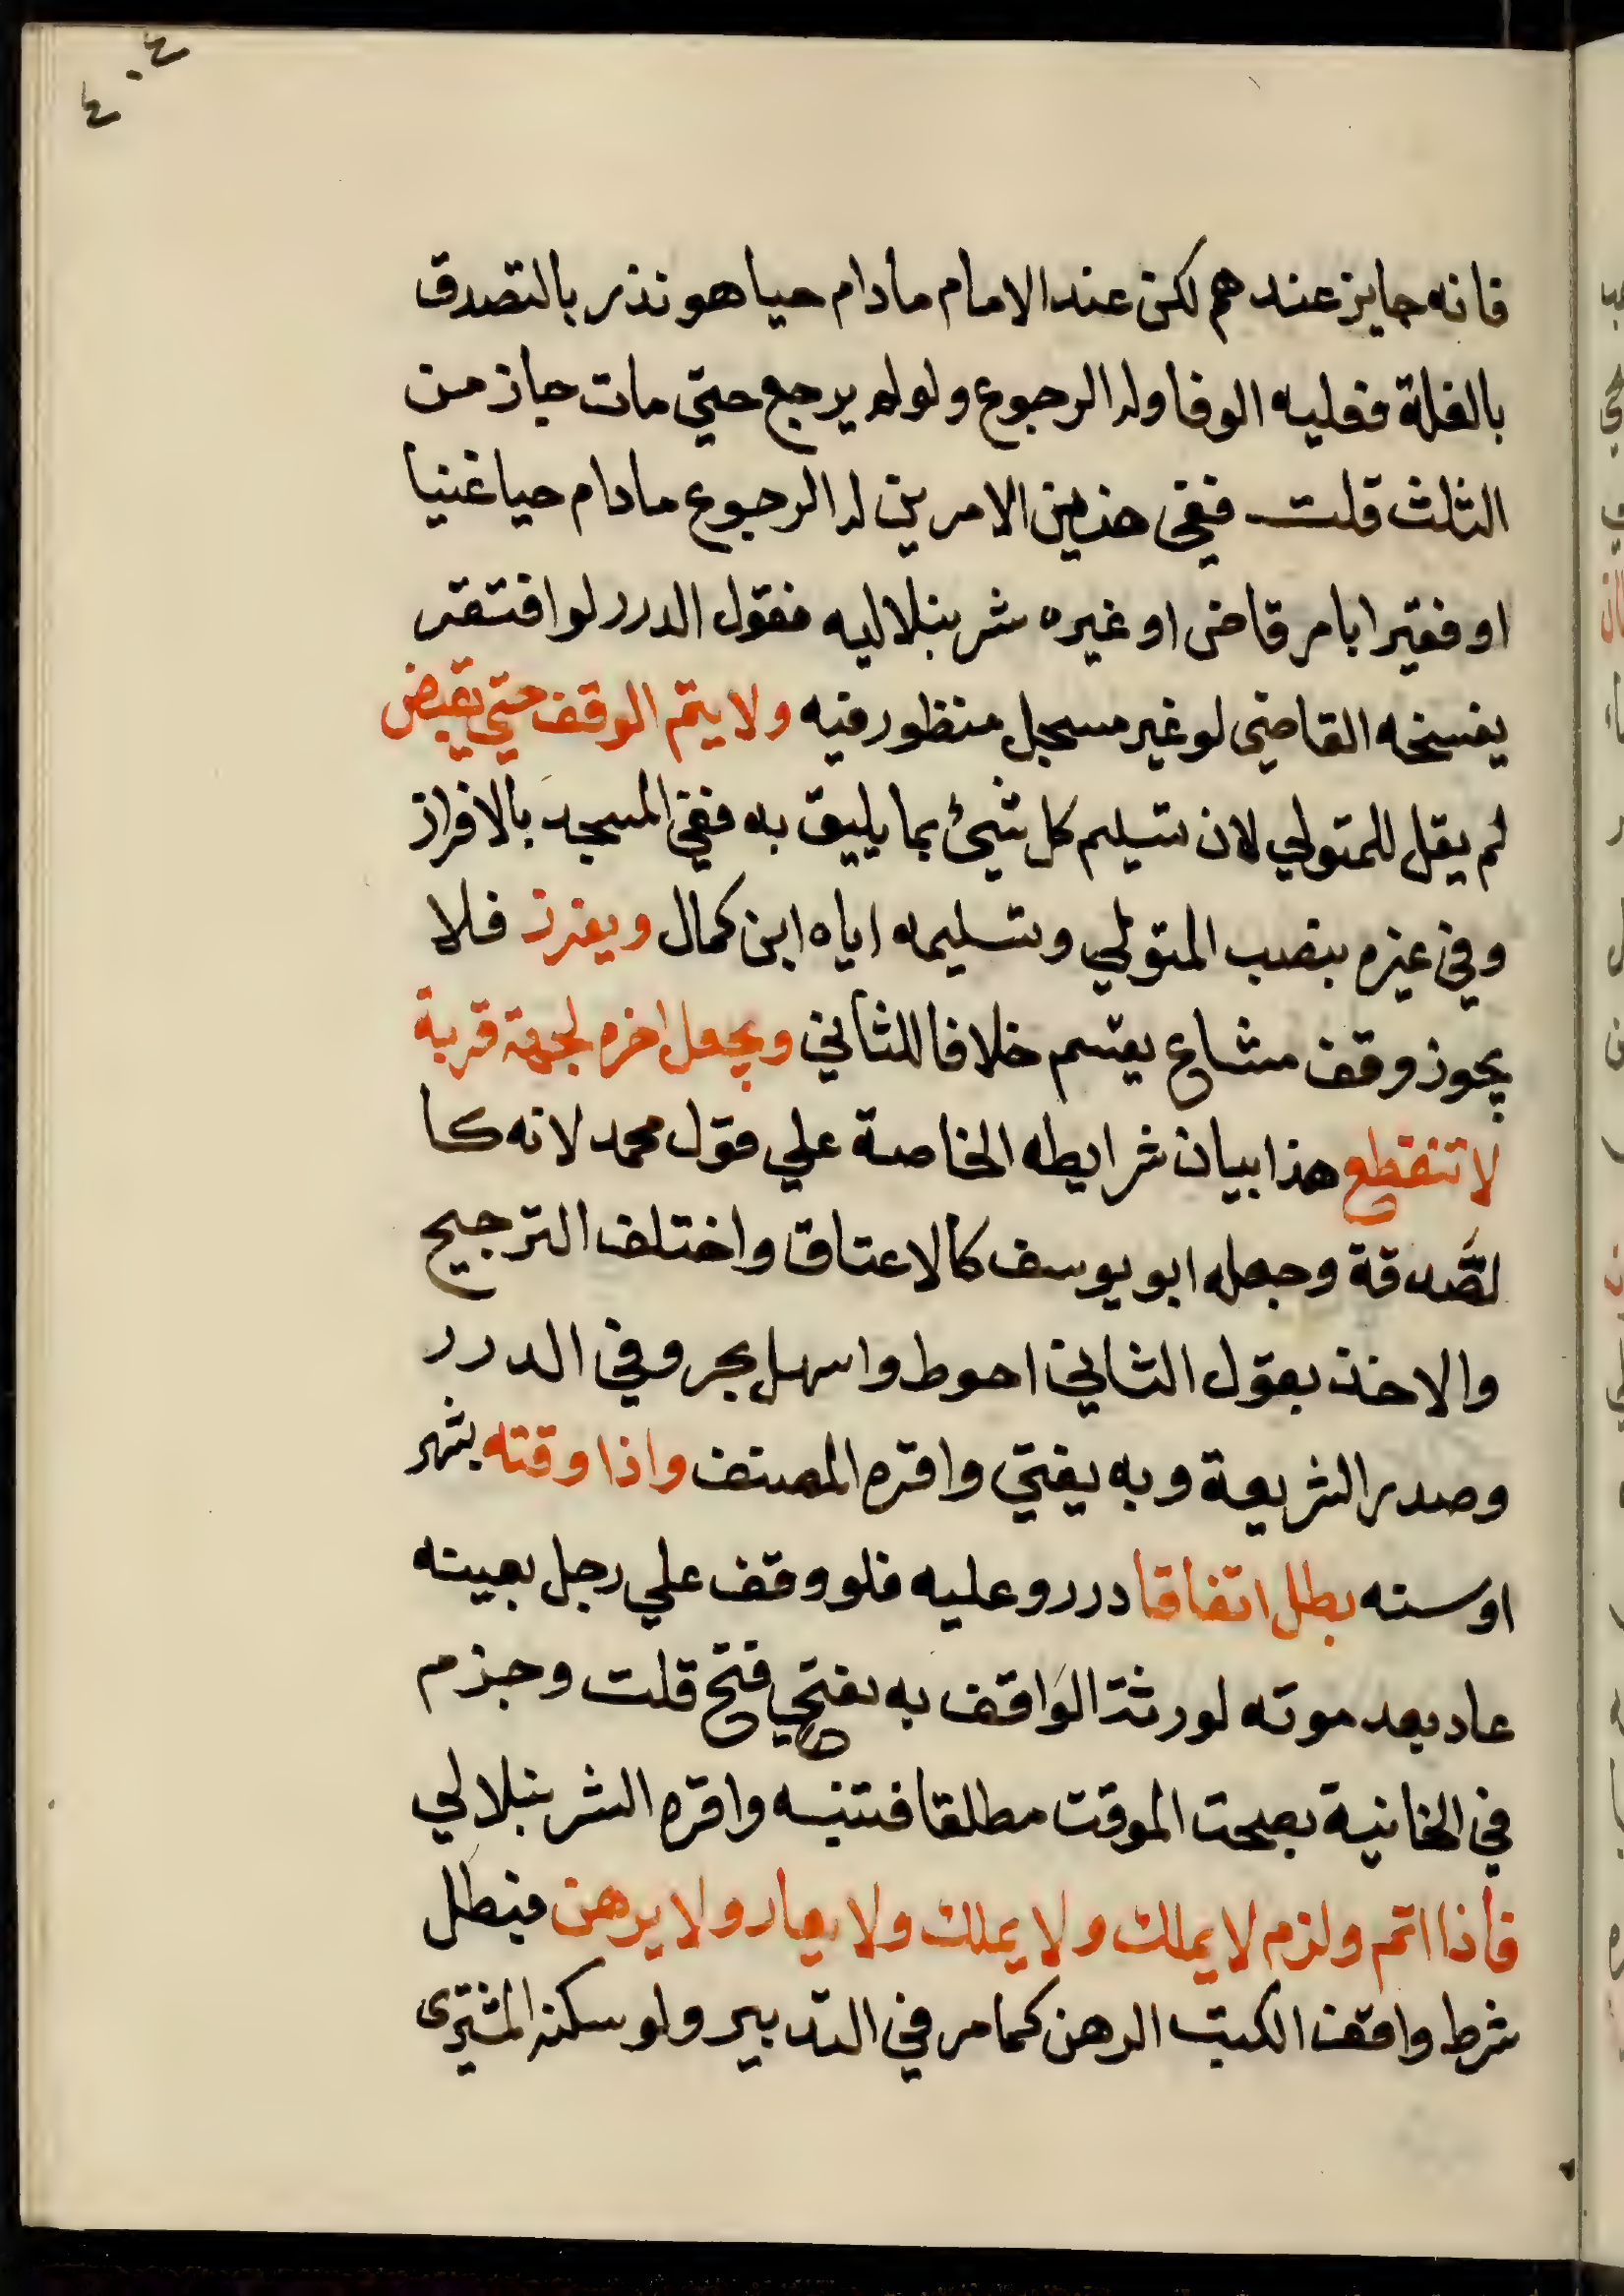 ٤٠٤
فانه جايز عندهم لكن عند الامام مادام حيا هو نذر بالتصدق
بالغلة فعليه الوفا وله الرجوع ولو لم يرجع حتي مات جاز من
الثلث قلت ففي هذين الامرين له الرجوع مادام حيا غنيا
او فقيرا بامر قاضى او غيره شربنلاليه فقول الدرر لو افتقر
يفسخه القاضي لو غير مسجل منظور فيه ولا يتم الوقف حتي يقبض
لم يقل للمتولي لان تسليم كل شيئ بما يليق به ففي المسجد بالافراز
وفي غيره بنصب المتولي وتسليمه اياه ابن كمال ويفرز فلا
يجوز وقف مشاع يقسم خلافا للثاني ويجعل اخره لجهة قربة
لا تنقطع هذا بيان شرايطه الخاصة علي قول محمد لانه كا
لصدقة وجعله ابو يوسف كالاعتاق واختلف الترجيح
والاخذ بقول الثاني احوط واسهل بحر وفي الدرر
وصدر الشريعة وبه يفتي واقره المصنف واذا وقته بشهر
او سنه بطل اتفاقا درر وعليه فلو وقف علي رجل بعينه
عاد بعد موته لورثة الواقف به يفتي فتح قلت وجزم
في الخانية بصحت الموقت مطلقا فتنبه واقره الشربنلالي
فاذا اتم ولزم لا يملك ولا يملك ولا يعار ولا يرهن فبطل
شرط واقف الكتب الرهن كما مر في التدبير ولو سكنه المشترى